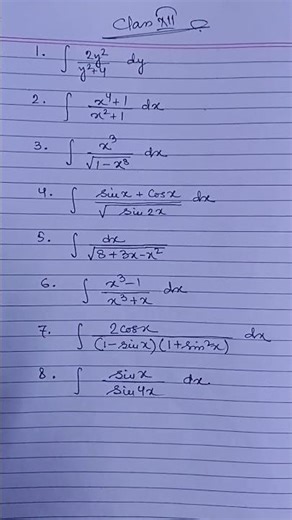 Class XII
1. ∫ 2y²/(y²+4) dy
2. ∫ (x⁴+1)/(x²+1) dx
3. ∫ x³/√(1-x⁸) dx
4. ∫ (sinx + cosx)/√(sin2x) dx
5. ∫ dx/√(8+3x-x²)
6. ∫ (x³-1)/(x³+x) dx
7. ∫ 2cosx/((1-sinx)(1+sin²x)) dx
8. ∫ sinx/sin4x dx